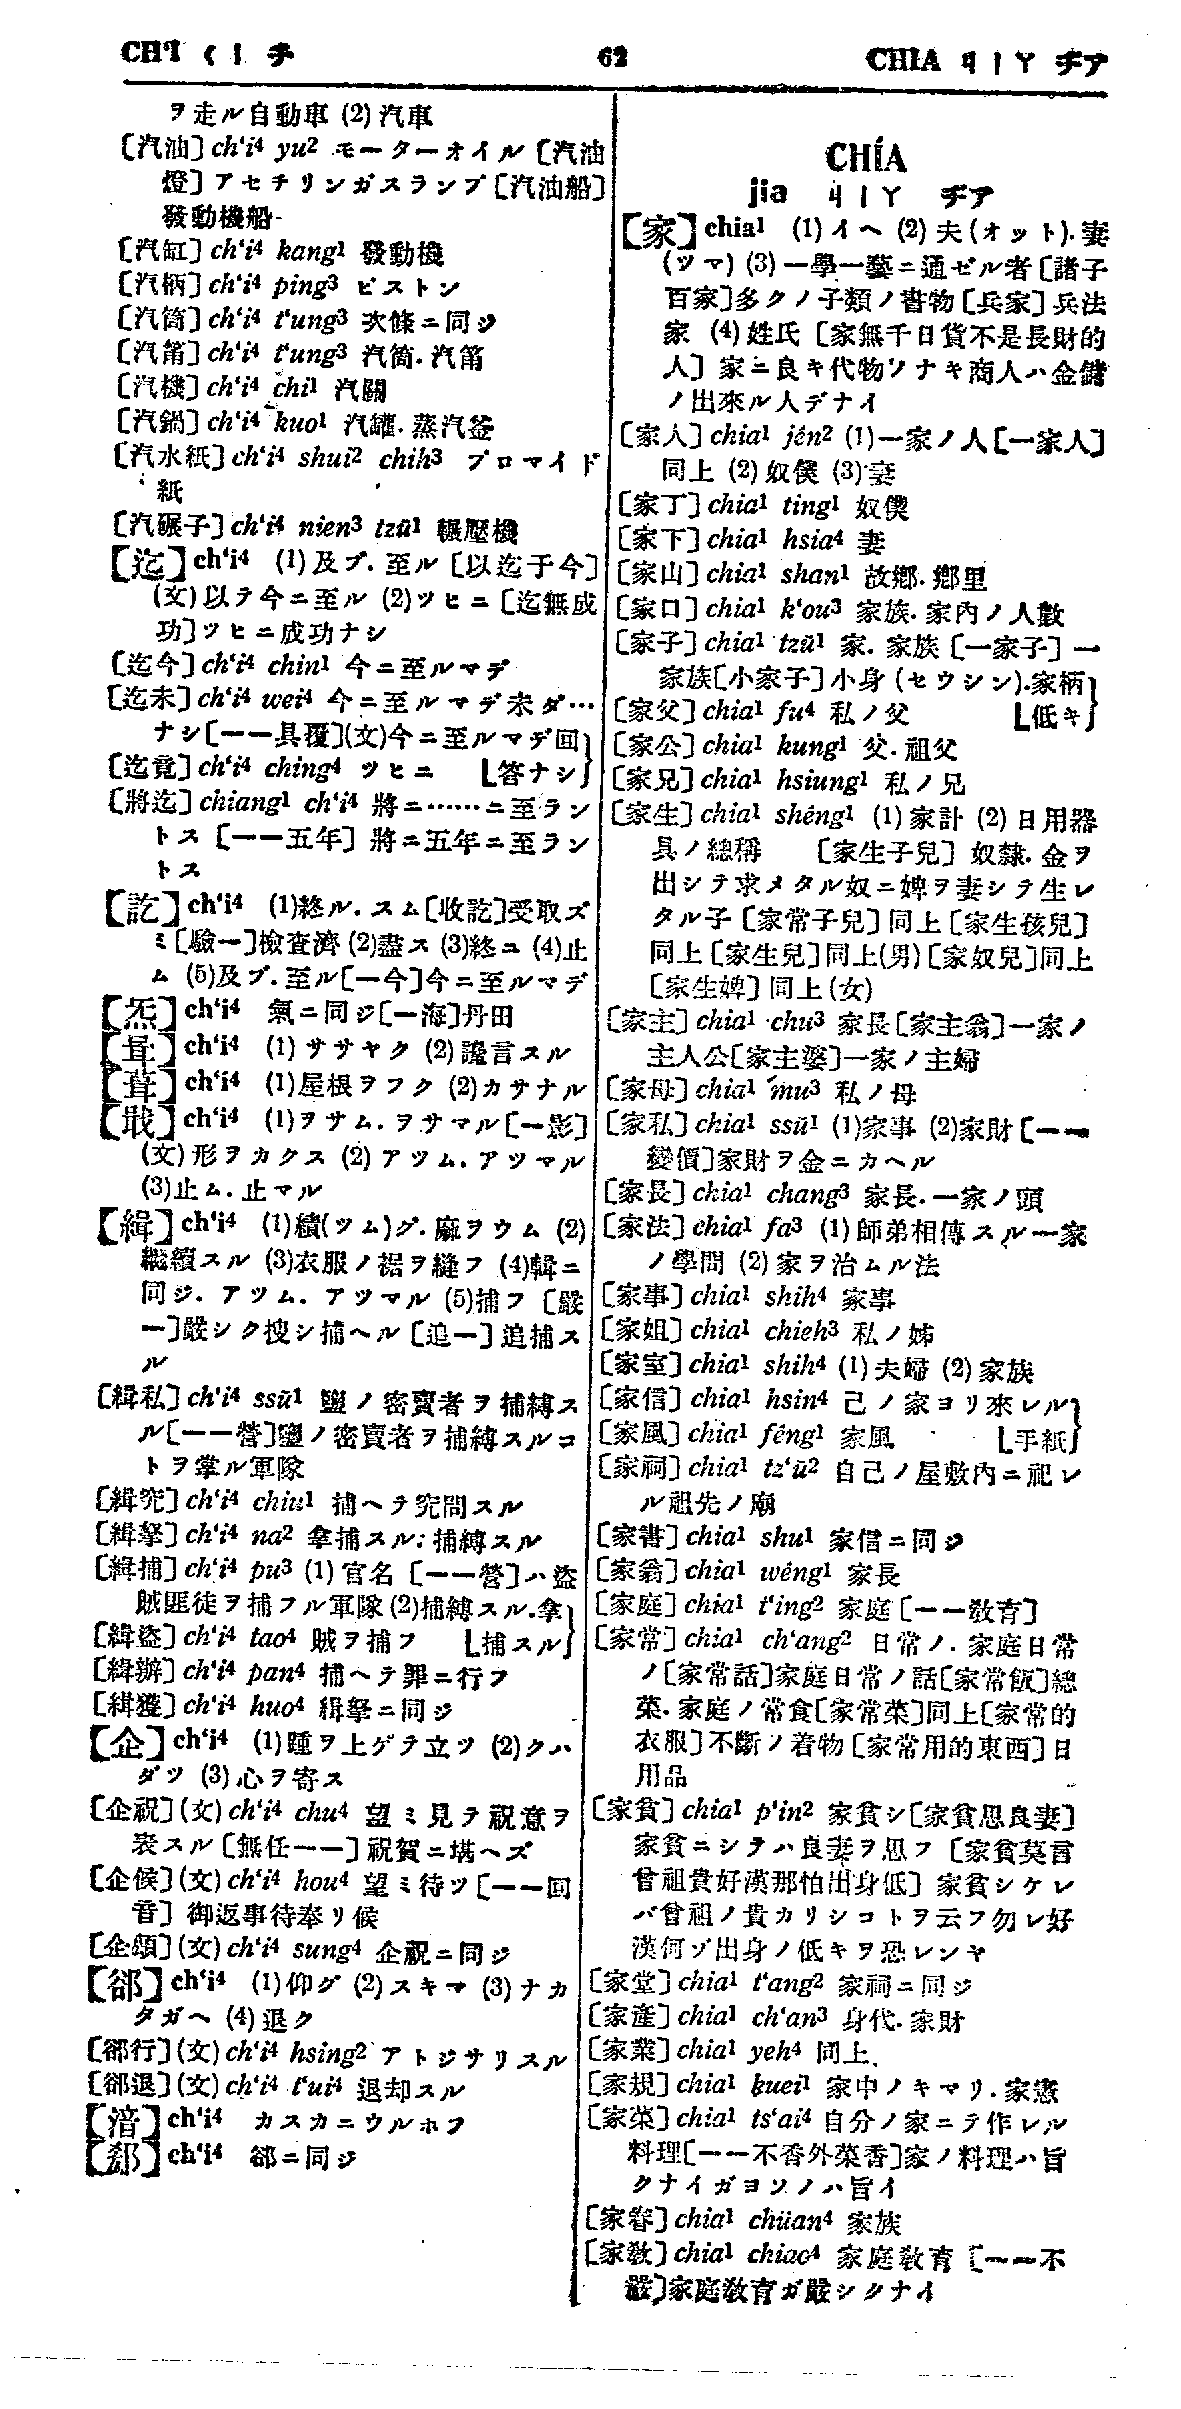 CH'I ㄑㄧ チ 62 CHIA ㄐㄧㄚ ヂア
ヲ走ル自動車 (2)汽車
[汽油] ch‘i⁴ yu² モーターオイル [汽油
燈] アセチリンガスランプ[汽油船]
發動機船
[汽缸] ch‘i⁴ kang¹ 發動機
[汽柄] ch‘i⁴ ping³ ピストン
[汽筒] ch‘i⁴ t‘ung³ 次條ニ同ジ
[汽筩] ch‘i⁴ t‘ung³ 汽筒. 汽筩
[汽機] ch‘i⁴ chi¹ 汽關
[汽鍋] ch‘i⁴ kuo¹ 汽罐. 蒸汽釜
[汽水紙] ch‘i⁴ shui² chih³ ブロマイド
紙
[汽碾子] ch‘i⁴ nien³ tzŭ¹ 輾壓機
【迄】ch‘i⁴ (1)及ブ. 至ル [以迄于今]
(文)以テ今ニ至ル (2)ツヒニ [迄無成
功]ツヒニ成功ナシ
[迄今] ch‘i⁴ chin¹ 今ニ至ルマデ
[迄未] ch‘i⁴ wei⁴ 今ニ至ルマデ未ダ…
ナシ[一一具覆](文)今ニ至ルマデ囘
[迄竟] ch‘i⁴ ching⁴ ツヒニ 答ナシ
[將迄] chiang¹ ch‘i⁴ 將ニ……ニ至ラン
トス [一一五年] 將ニ五年ニ至ラン
トス
【訖】ch‘i⁴ (1)終ル. スム[收訖]受取ズ
ミ[驗一]檢查濟 (2)盡ス (3)終ユ (4)止
ム (5)及ブ. 至ル[一今]今ニ至ルマデ
【炁】ch‘i⁴ 氣ニ同ジ[一海]丹田
【咠】ch‘i⁴ (1)ササヤク (2)讒言スル
【葺】ch‘i⁴ (1)屋根ヲフク (2)カサナル
【戢】ch‘i⁴ (1)ヲサム. ヲサマル[一影]
(文)形ヲカクス (2)アツム. アツマル
(3)止ム. 止マル
【緝】ch‘i⁴ (1)績(ツム)グ. 麻ヲウム (2)
繼續スル (3)衣服ノ裾ヲ縫フ (4)輯ニ
同ジ. アツム. アツマル (5)捕フ [嚴
一]嚴シク搜シ捕ヘル [追一] 追捕ス
ル
[緝私] ch‘i⁴ ssŭ¹ 鹽ノ密賣者ヲ捕縛ス
ル[一一營]鹽ノ密賣者ヲ捕縛スルコ
トヲ掌ル軍隊
[緝究] ch‘i⁴ chiu¹ 捕ヘテ究問スル
[緝拏] ch‘i⁴ na² 拿捕スル: 捕縛スル
[緝捕] ch‘i⁴ pu³ (1)官名 [一一營]ハ盜
賊匪徒ヲ捕フル軍隊(2)捕縛スル. 拿
[緝盜] ch‘i⁴ tao⁴ 賊ヲ捕フ 捕スル
[緝辦] ch‘i⁴ pan⁴ 捕ヘテ罪ニ行フ
[緝獲] ch‘i⁴ huo⁴ 緝拏ニ同ジ
【企】ch‘i⁴ (1)踵ヲ上ゲテ立ツ (2)クハ
ダツ (3)心ヲ寄ス
[企祝](文) ch‘i⁴ chu⁴ 望ミ見テ祝意ヲ
表スル [無任一一] 祝賀ニ堪ヘズ
[企候](文) ch‘i⁴ hou⁴ 望ミ待ツ[一一回
音] 御返事待奉リ候
[企頌](文) ch‘i⁴ sung⁴ 企祝ニ同ジ
【郤】ch‘i⁴ (1)仰グ (2)スキマ (3)ナカ
タガヘ (4)退ク
[郤行](文) ch‘i⁴ hsing² アトジサリスル
[郤退](文) ch‘i⁴ t‘ui⁴ 退却スル
【湇】ch‘i⁴ カスカニウルホフ
【郄】ch‘i⁴ 郤ニ同ジ
CHÍA
jia ㄐㄧㄚ ヂア
【家】chia¹ (1)イヘ (2)夫(オット). 妻
(ツマ) (3)一學一藝ニ通ゼル者[諸子
百家]多クノ子類ノ書物[兵家]兵法
家 (4)姓氏 [家無千日貨不是長財的
人] 家ニ良キ代物ソナキ商人ハ金儲
ノ出來ル人デナイ
[家人] chia¹ jên² (1)一家ノ人[一家人]
同上 (2)奴僕 (3)妻
[家丁] chia¹ ting¹ 奴僕
[家下] chia¹ hsia⁴ 妻
[家山] chia¹ shan¹ 故鄉. 鄉里
[家口] chia¹ k‘ou³ 家族. 家內ノ人數
[家子] chia¹ tzŭ¹ 家. 家族 [一家子] 一
家族[小家子]小身 (セウシン). 家柄
[家父] chia¹ fu⁴ 私ノ父 低キ
[家公] chia¹ kung¹ 父. 祖父
[家兄] chia¹ hsiung¹ 私ノ兄
[家生] chia¹ shêng¹ (1)家計 (2)日用器
具ノ總稱 [家生子兒] 奴隸. 金ヲ
出シテ求メタル奴ニ婢ヲ妻シテ生レ
タル子 [家常子兒]同上[家生孩兒]
同上[家生兒]同上(男)[家奴兒]同上
[家生婢] 同上(女)
[家主] chia¹ chu³ 家長[家主翁]一家ノ
主人公[家主婆]一家ノ主婦
[家母] chia¹ mu³ 私ノ母
[家私] chia¹ ssŭ¹ (1)家事 (2)家財[一一
變價]家財ヲ金ニカヘル
[家長] chia¹ chang³ 家長. 一家ノ頭
[家法] chia¹ fa³ (1)師弟相傳スル一家
ノ學問 (2)家ヲ治ムル法
[家事] chia¹ shih⁴ 家事
[家姐] chia¹ chieh³ 私ノ姊
[家室] chia¹ shih⁴ (1)夫婦 (2)家族
[家信] chia¹ hsin⁴ 己ノ家ヨリ來レル
[家風] chia¹ fêng¹ 家風 手紙
[家祠] chia¹ tz‘ŭ² 自己ノ屋敷內ニ祀レ
ル祖先ノ廟
[家書] chia¹ shu¹ 家信ニ同ジ
[家翁] chia¹ wêng¹ 家長
[家庭] chia¹ t‘ing² 家庭[一一敎育]
[家常] chia¹ ch‘ang² 日常ノ. 家庭日常
ノ[家常話]家庭日常ノ話[家常飯]總
菜. 家庭ノ常食[家常菜]同上[家常的
衣服]不斷ノ着物[家常用的東西]日
用品
[家貧] chia¹ p‘in² 家貧シ[家貧思良妻]
家貧ニシテハ良妻ヲ思フ [家貧莫言
曾祖貴好漢那怕出身低] 家貧シケレ
バ曾祖ノ貴カリシコトヲ云フ勿レ好
漢何ゾ出身ノ低キヲ恐レンヤ
[家堂] chia¹ t‘ang² 家祠ニ同ジ
[家產] chia¹ ch‘an³ 身代. 家財
[家業] chia¹ yeh⁴ 同上
[家規] chia¹ kuei¹ 家中ノキマリ. 家憲
[家菜] chia¹ ts‘ai⁴ 自分ノ家ニテ作レル
料理[一一不香外菜香]家ノ料理ハ旨
クナイガヨソノハ旨イ
[家眷] chia¹ chüan⁴ 家族
[家敎] chia¹ chiao⁴ 家庭敎育 [一一不
嚴]家庭敎育ガ嚴シクナイ